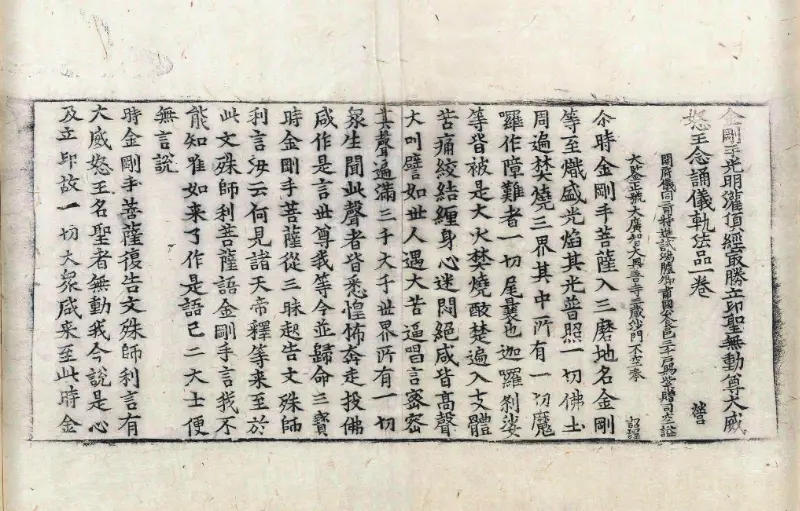 金剛手光明灌頂經最勝立印聖無動尊大威
怒王念誦儀軌法品一卷 營
開府儀同三司特進試鴻臚卿肅國公食邑三千戶賜紫贈司空謚
大鑒正號大廣智大興善寺三藏沙門不空奉 詔譯
尒時金剛手菩薩入三磨地名金剛
等至熾盛光焰其光普照一切佛土
周遍焚燒三界其中所有一切魔
囉作障難者一切尾曩也迦羅刹娑
等皆被是大火焚燒酸楚遍入支體
苦痛絞結纏身心迷悶絕咸皆高聲
大叫譬如世人遇大苦逼唱言密密
其聲遍滿三千大千世界所有一切
衆生聞此聲者皆悉惶怖奔走投佛
咸作是言世尊我等今並歸命三寶
時金剛手菩薩從三昧起告文殊師
利言汝云何見諸天帝釋等来至於
此文殊師利菩薩語金剛手言我不
能知唯如来了作是語已二大士便
無言說
時金剛手菩薩復告文殊師利言有
大威怒王名聖者無動我今說是心
及立印故一切大衆咸来至此時金